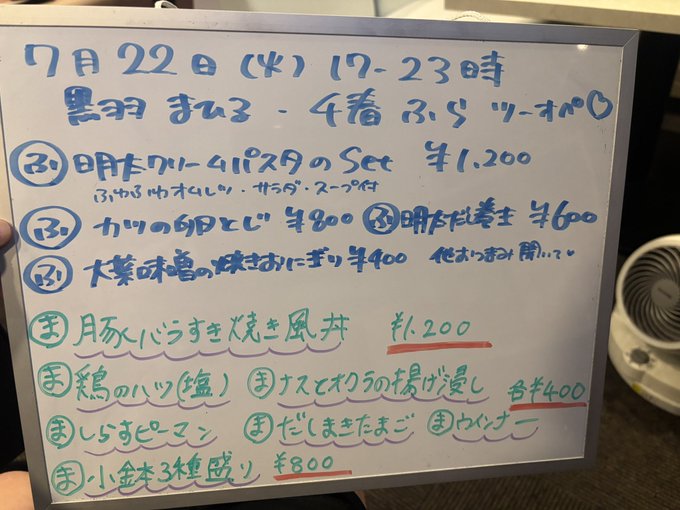 7月22日(火) 17-23時
黒羽 まひる・4春 ふら ツーオペ♡
ふ 明太クリームパスタのSet ¥1,200
ふわふわオムレツ・サラダ・スープ付
ふ カツの卵とじ ¥800 ふ 明太だし巻き ¥600
ふ 大葉味噌の焼きおにぎり ¥400 他おつまみ聞いて♥
ま 豚バラすき焼き風丼 ¥1.200
ま 鶏のハツ(塩) ま ナスとオクラの揚げ浸し 各¥400
ま しらすピーマン ま だしまきたまご ま ウインナー
ま 小鉢3種盛り ¥800